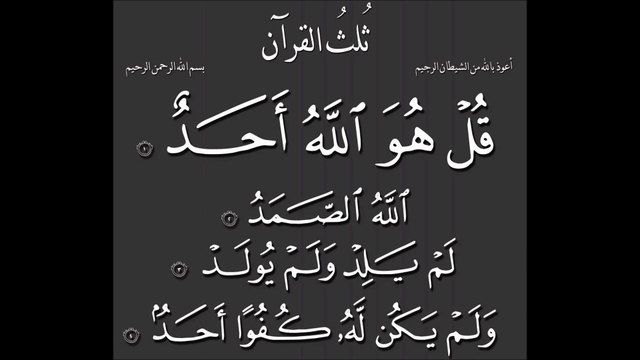 ثُلثُ القرآن
أعوذ بالله من الشيطان الرجيم بسم الله الرحمن الرحيم
قُلْ هُوَ ٱللَّهُ أَحَدٌ ١
ٱللَّهُ ٱلصَّمَدُ ٢
لَمْ يَلِدْ وَلَمْ يُولَدْ ٣
وَلَمْ يَكُن لَّهُۥ كُفُوًا أَحَدٌۢ ٤